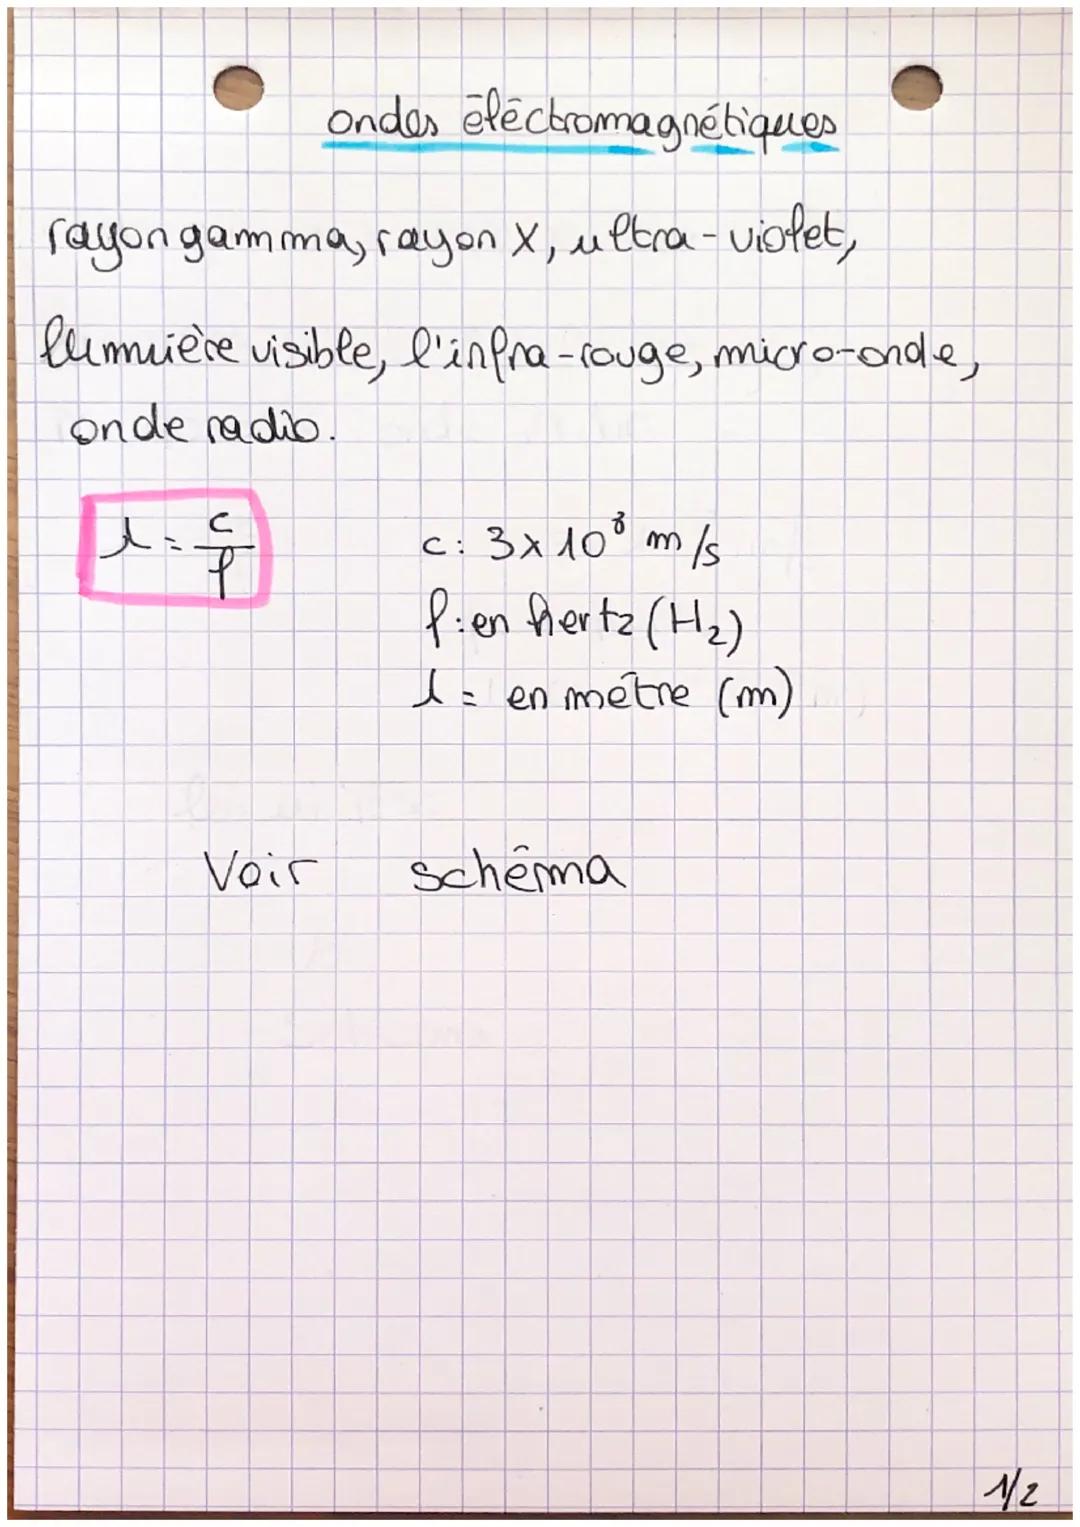 ondes éléctromagnétiques
rayon gamma, rayon X, ultra-violet,
lummière visible, l'infra-rouge, micro-onde,
onde radio.
λ = c/f
c: 3 x 10⁸ m/s
f: en hertz (Hz)
λ = en métre (m)
Voir schéma
1/2